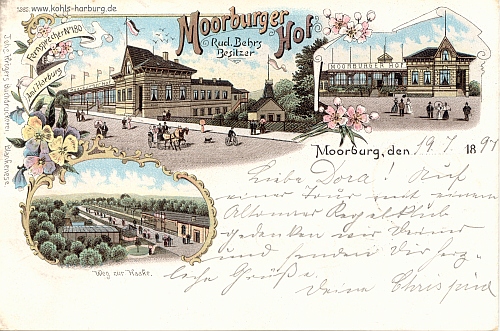 www.kohls-harburg.de
Moorburger
Hof
Rud. Behrs
Besitzer
Fernsprecher No 180
Amt Harburg
MOORBURGER HOF
Moorburg, den 19.7. 1897
Liebe Dora! Auf
einer Tour mit einem
Altonaer Kegelklub
gedenken wir Deiner
und senden Dir herz-
liche Grüße.
Deine
Weg zur Haake.